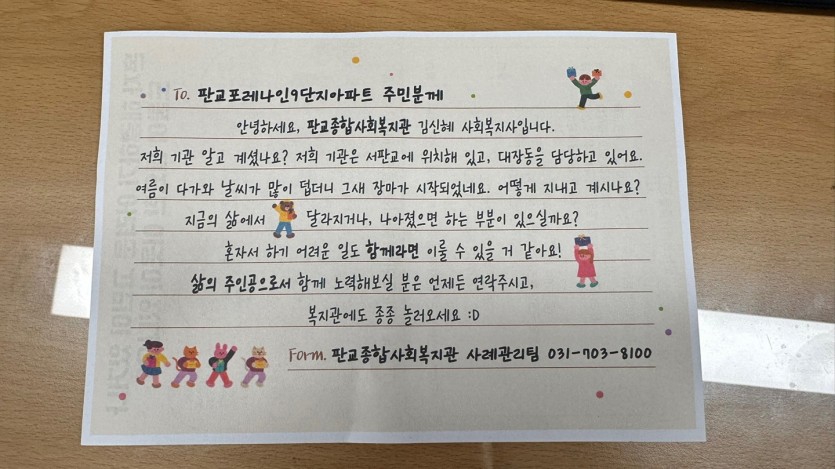 To. 판교포레나인9단지아파트 주민분께
안녕하세요, 판교종합사회복지관 김신혜 사회복지사입니다.
저희 기관 알고 계셨나요? 저희 기관은 서판교에 위치해 있고, 대장동을 담당하고 있어요.
여름이 다가와 날씨가 많이 덥더니 그새 장마가 시작되었네요. 어떻게 지내고 계시나요?
지금의 삶에서 달라지거나, 나아졌으면 하는 부분이 있으실까요?
혼자서 하기 어려운 일도 함께라면 이룰 수 있을 거 같아요!
삶의 주인공으로서 함께 노력해보실 분은 언제든 연락주시고,
복지관에도 종종 놀러오세요 :D
Form. 판교종합사회복지관 사례관리팀 031-703-8100